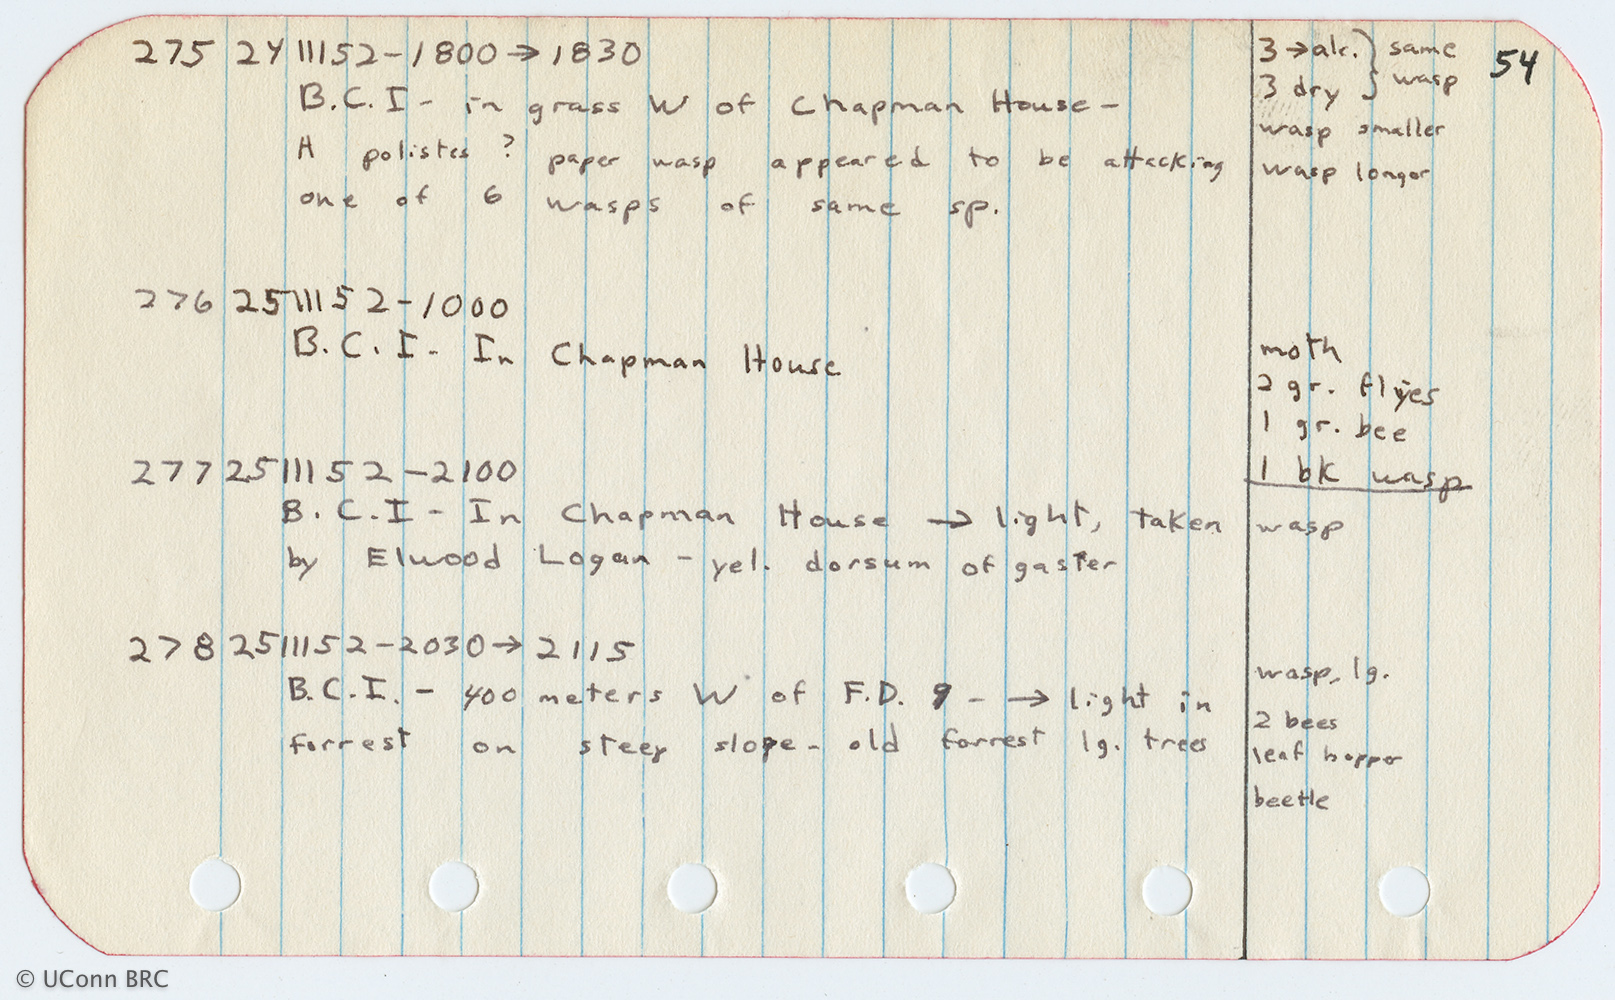 54
275 24 III 52 - 1800 → 1830
B.C.I - in grass W of Chapman House -
A polistes ? paper wasp appeared to be attacking
one of 6 wasps of same sp.
3 → alc. } same
3 dry } wasp
wasp smaller
wasp longer
276 25 III 52 - 1000
B.C.I - In Chapman House
moth
2 gr. flyes
1 gr. bee
1 bk wasp
277 25 III 52 - 2100
B.C.I - In Chapman House → light, taken
by Elwood Logan - yel. dorsum of gaster
wasp
278 25 III 52 - 2030 → 2115
B.C.I. - 400 meters W of F.D. 9 - → light in
forrest on steep slope - old forrest lg. trees
wasp, lg.
2 bees
leaf hopper
beetle
© UConn BRC